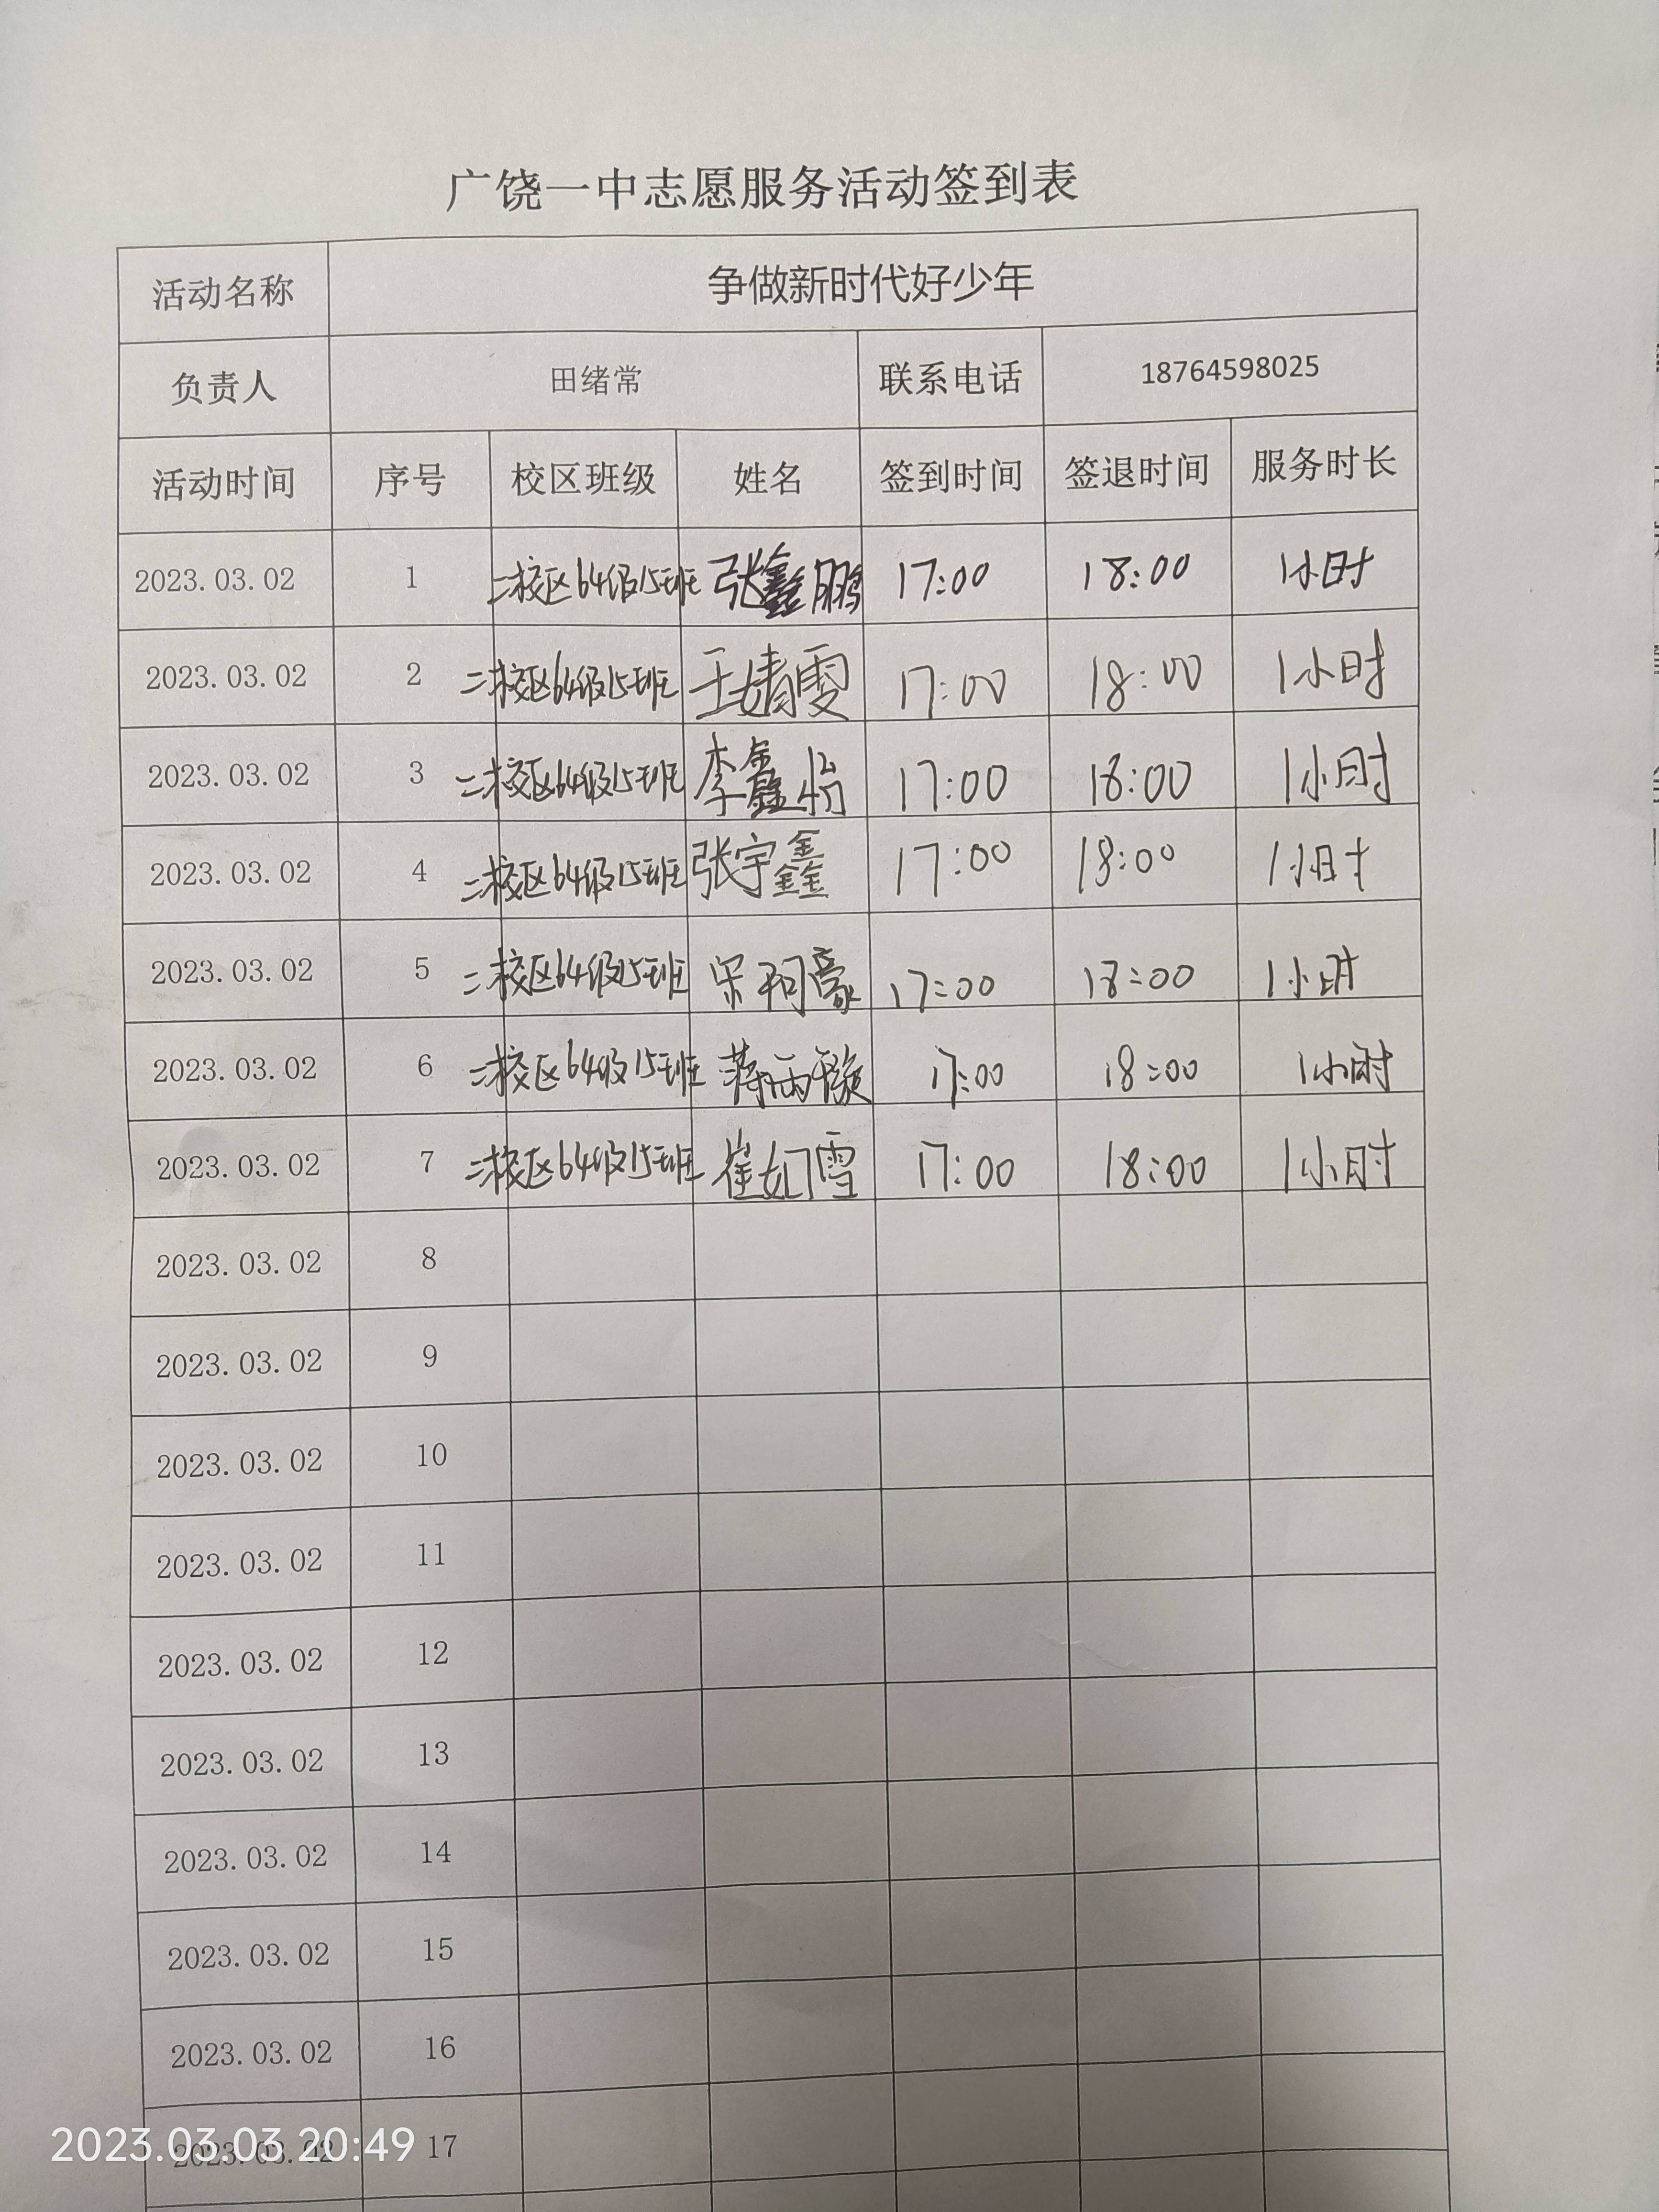 广饶一中志愿服务活动签到表
活动名称 争做新时代好少年
负责人 田绪常 联系电话 18764598025
活动时间 序号 校区班级 姓名 签到时间 签退时间 服务时长
2023.03.02 1 二校区64级15班 张鑫鹏 17:00 18:00 1小时
2023.03.02 2 二校区64级15班 王婧雯 17:00 18:00 1小时
2023.03.02 3 二校区64级15班 李鑫怡 17:00 18:00 1小时
2023.03.02 4 二校区64级15班 张宇鑫 17:00 18:00 1小时
2023.03.02 5 二校区64级15班 宋珂豪 17:00 18:00 1小时
2023.03.02 6 二校区64级15班 蒋雨璇 17:00 18:00 1小时
2023.03.02 7 二校区64级15班 崔如雪 17:00 18:00 1小时
2023.03.02 8
2023.03.02 9
2023.03.02 10
2023.03.02 11
2023.03.02 12
2023.03.02 13
2023.03.02 14
2023.03.02 15
2023.03.02 16
2023.03.02 17
2023.03.03 20:49